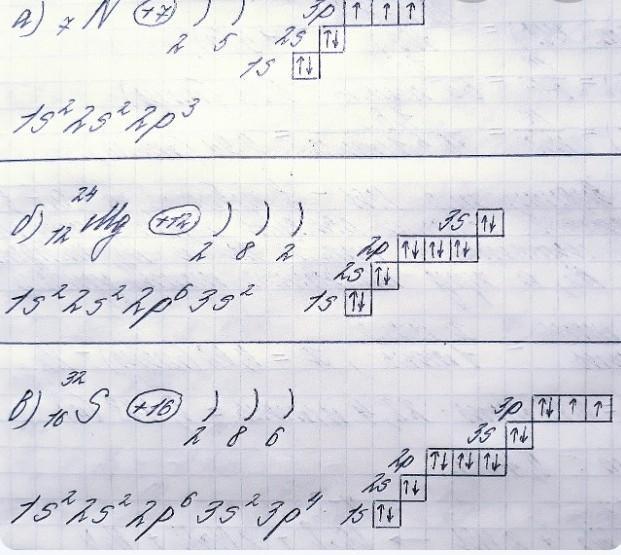 а) ₇N (+7) ) )
2 5
3p ↑ ↑ ↑
2s ↑↓
1s ↑↓
1s² 2s² 2p³
б) ²⁴₁₂Mg (+12) ) ) )
2 8 2
3s ↑↓
2p ↑↓ ↑↓ ↑↓
2s ↑↓
1s ↑↓
1s² 2s² 2p⁶ 3s²
в) ³²₁₆S (+16) ) ) )
2 8 6
3p ↑↓ ↑ ↑
3s ↑↓
2p ↑↓ ↑↓ ↑↓
2s ↑↓
1s ↑↓
1s² 2s² 2p⁶ 3s² 3p⁴